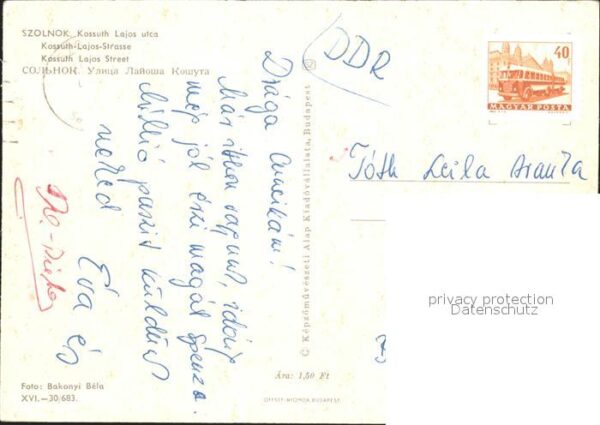 SZOLNOK, Kossuth Lajos utca
Kossuth-Lajos-Strasse
Kossuth Lajos Street
СОЛЬНОК. Улица Лайоша Кошута
DDR
40
MAGYAR POSTA
Drága
Már itthon vagyunk, idáig
még jól érzi magát
Millió puszit küldünk
neked Éva és
Tóth Leila Aranka
© Képzőművészeti Alap Kiadóvállalata, Budapest
privacy protection
Datenschutz
Foto: Bakonyi Béla
XVI.—30/683.
Ára: 1,50 Ft
OFFSET-NYOMDA BUDAPEST